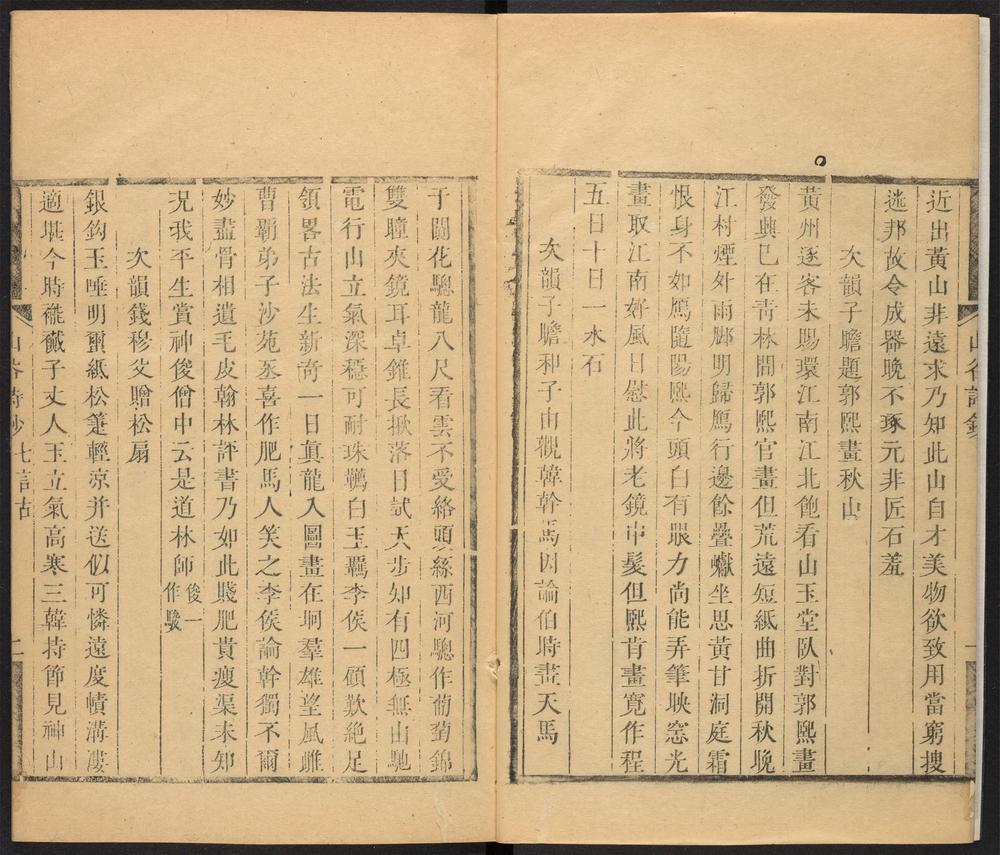 近出黃山非遠求乃知此山自才美物欲致用當窮搜
逃邦故令成器晚不琢元非匠石羞
次韻子瞻題郭熙畫秋山
黃州逐客未賜環江南江北飽看山玉堂臥對郭熙畫
發興已在青林間郭熙官畫但荒遠短紙曲折開秋晚
江村煙外雨腳明歸鴈行邊餘疊巘坐思黃甘洞庭霜
恨身不如鴈隨陽熙今頭白有眼力尚能弄筆映窻光
畫取江南好風日慰此將老鏡中髮但熙肯畫寬作程
五日十日一水石
次韻子瞻和子由觀韓幹馬因論伯時畫天馬
于闐花驄龍八尺看雲不受絡頭絲西河驄作葡萄錦
雙瞳夾鏡耳卓錐長楸落日試天步知有四極無山馳
電行山立氣深穩可耐珠韉白玉羈李侯一顧歎絕足
領畧古法生新奇一日眞龍入圖畫在坰羣雄望風雌
曹霸弟子沙苑丞喜作肥馬人笑之李侯論幹獨不爾
妙盡骨相遺毛皮翰林評書乃如此賤肥貴瘦渠未知
況我平生賞神俊僧中云是道林師俊一作駿
次韻錢穆父贈松扇
銀鈎玉唾明蠒紙松箑輕涼并送似可憐遠度幘溝漊
適堪今時褦襶子丈人玉立氣高寒三韓持節見神山
山谷詩鈔
山谷詩鈔 七言古 二